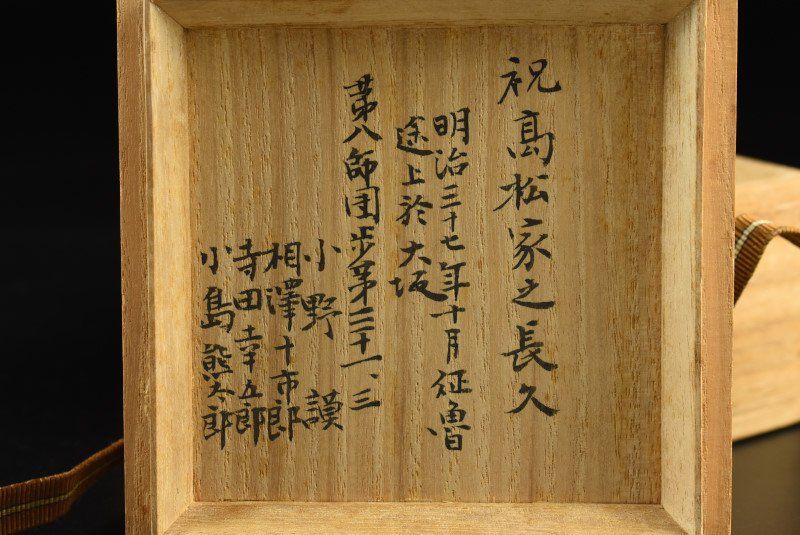 祝髙松家之長久
明治三十七年十月征魯
途上於大坂
第八師団歩第三十一、三
小野 謨
相澤十市郎
寺田幸五郎
小島熊太郎